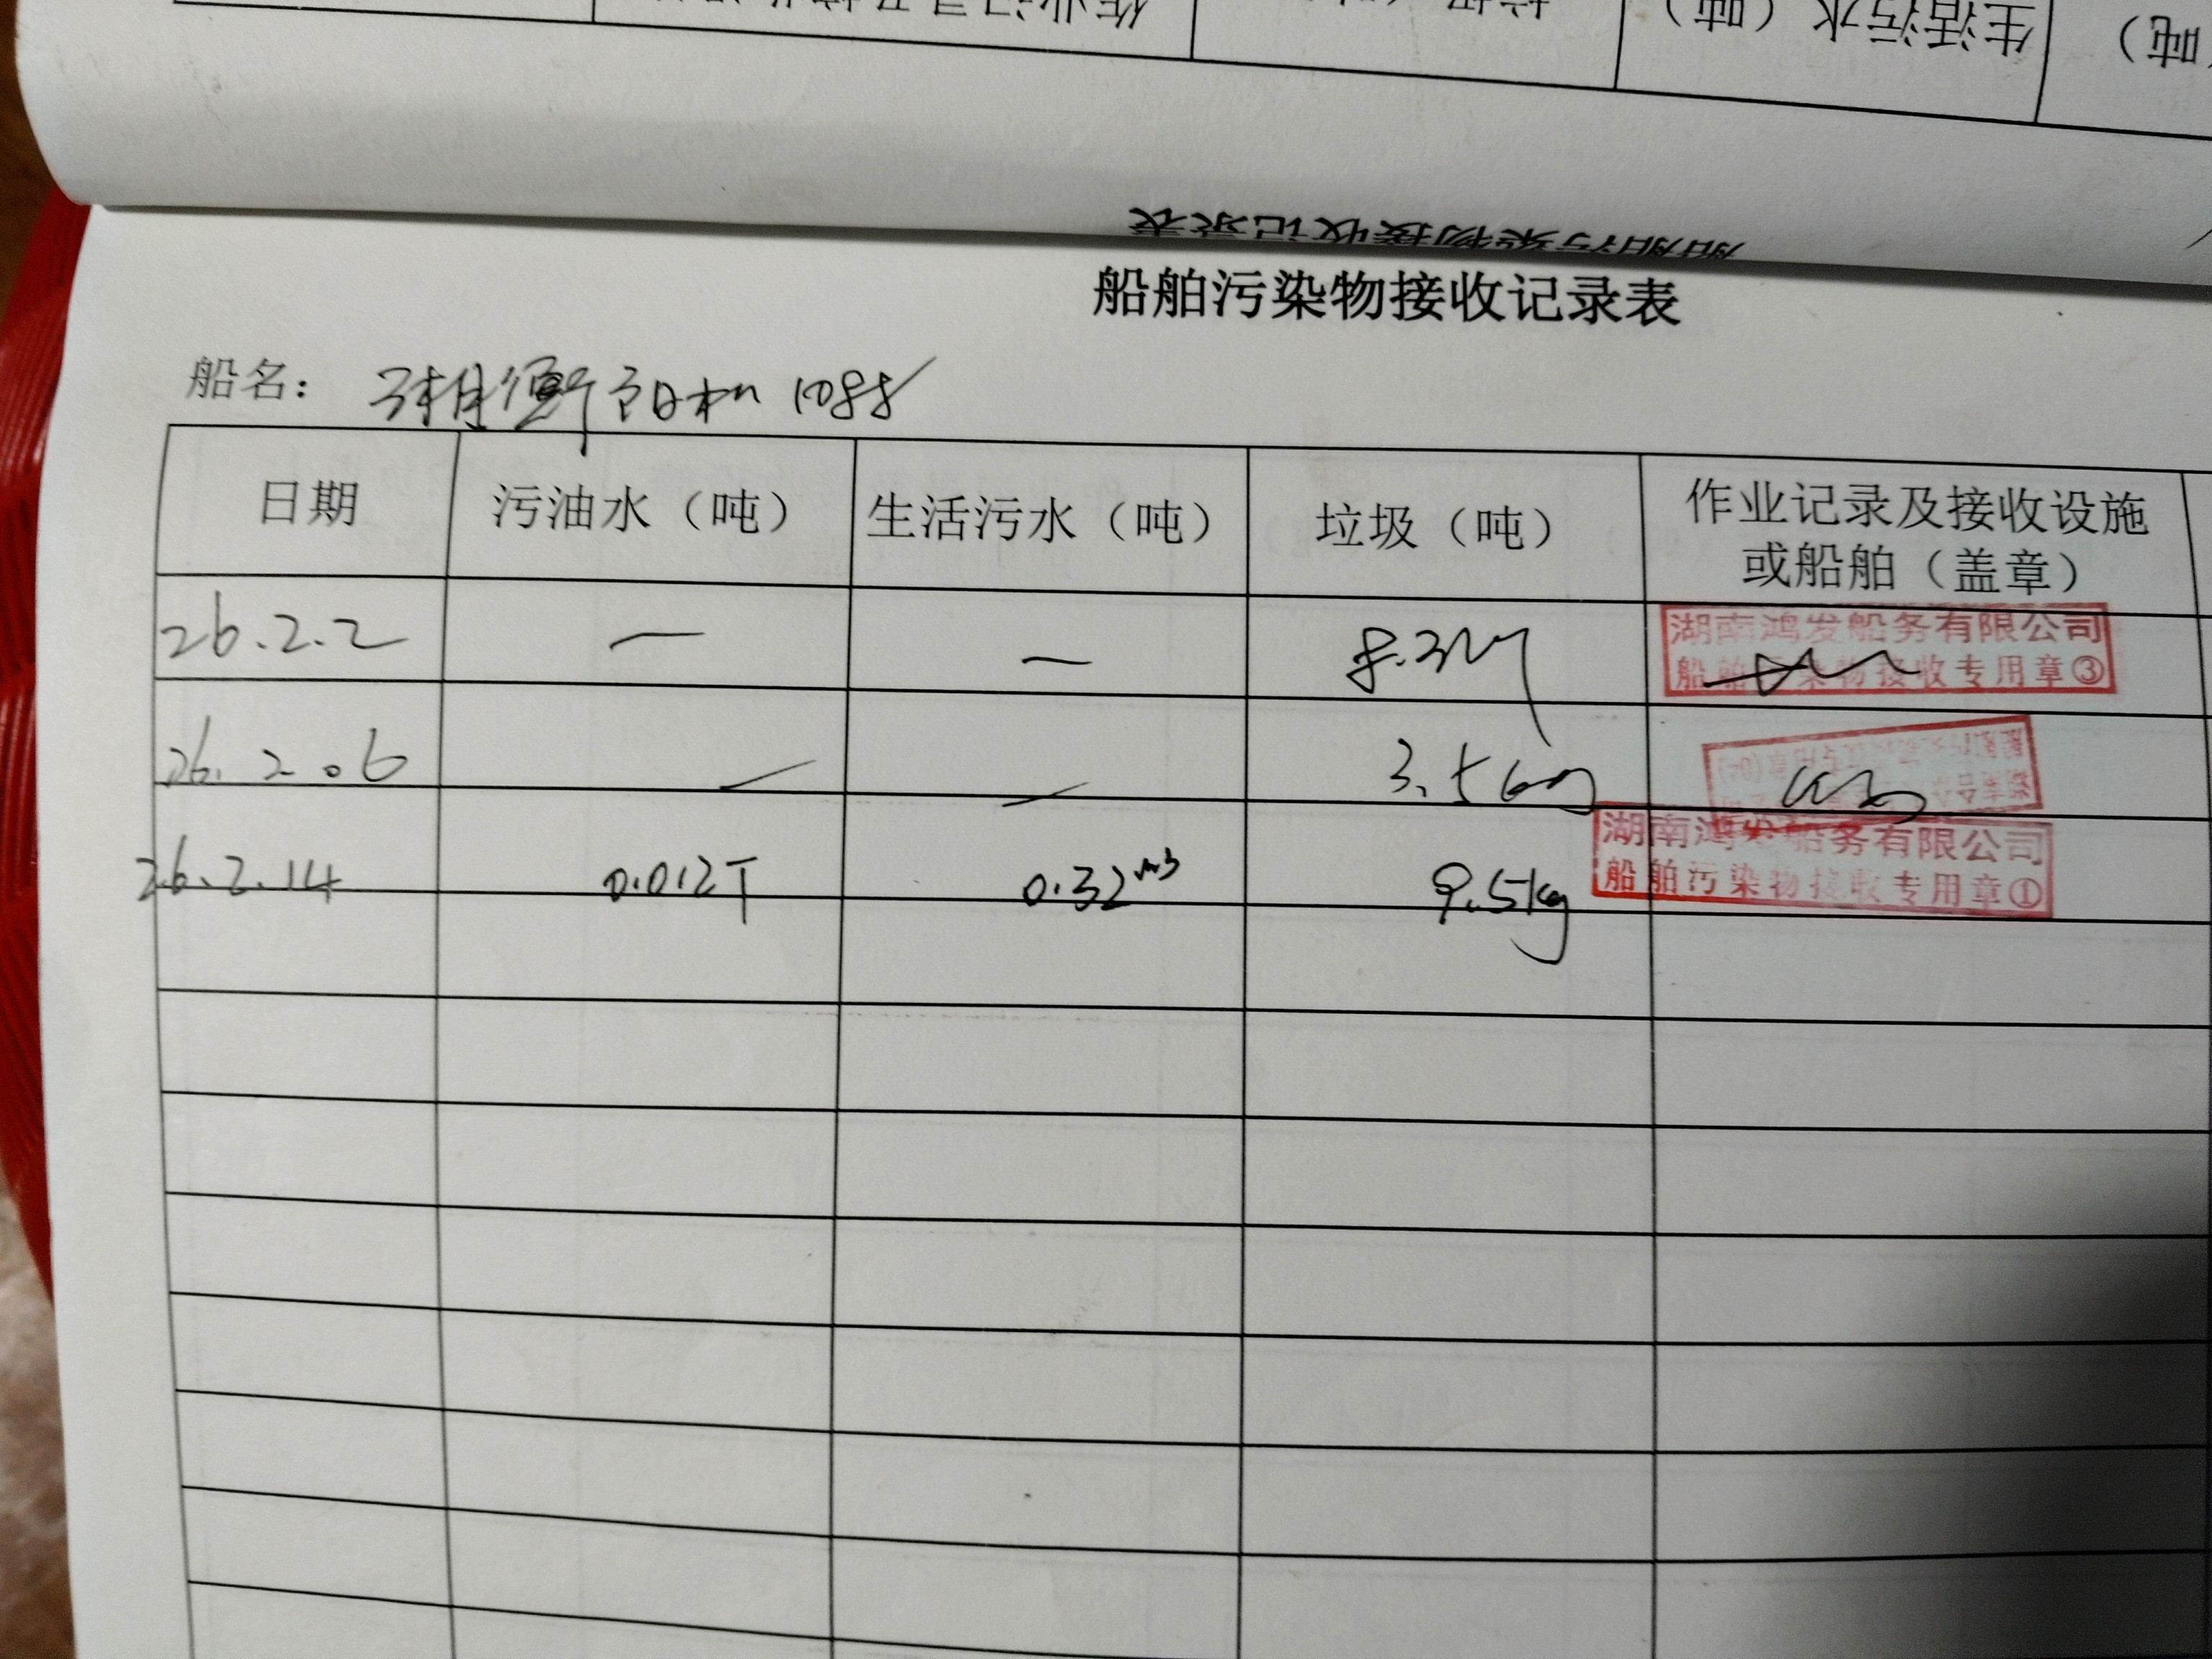 生活污水（吨）
（吨）
船舶污染物接收记录表
船舶污染物接收记录表
船名： 湘衡阳机 1088
日期 污油水（吨） 生活污水（吨） 垃圾（吨） 作业记录及接收设施
或船舶（盖章）
26.2.2 — — 8.3 湖南鸿发船务有限公司
船舶污染物接收专用章③
26.2.06 — — 3.5kg
26.2.14 0.012T 0.32m3 9.5kg 湖南鸿发船务有限公司
船舶污染物接收专用章①